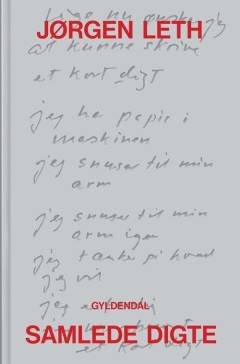 JØRGEN LETH
Lige nu ønsker jeg
at kunne skrive
et kort digt
jeg har papir i
maskinen
jeg snuser til min
arm
jeg snuser til min
arm igen
jeg tænker på hvad
jeg vil
GYLLDENDAL
SAMLEDE DIGTE
et kort digt